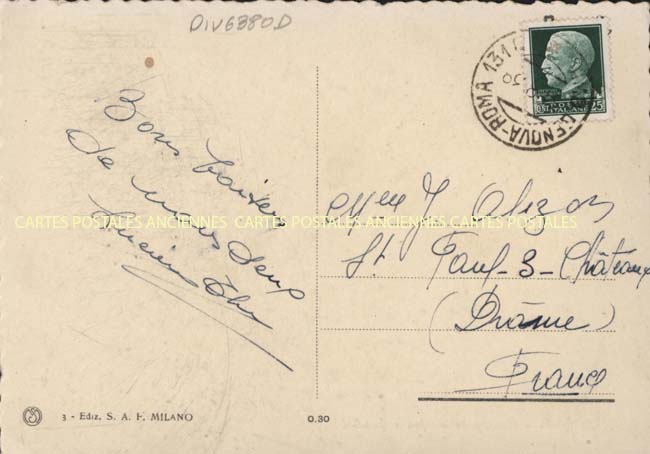 DIV6380D
GENOVA-ROMA 131
POSTE ITALIANE
CENT 25
Bons baisers
de nous deux
Mme J. Alizon
St Paul-3-Châteaux
(Drôme)
France
CARTES POSTALES ANCIENNES CARTES POSTALES ANCIENNES CARTES POSTALES
3 - Ediz. S. A. F. MILANO
0.30